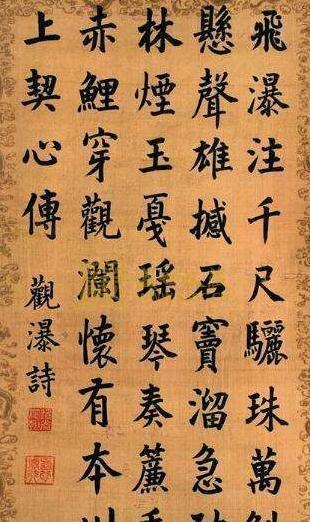 飛瀑注千尺驪珠萬
懸聲雄撼石竇溜急
林煙玉戛瑤琴奏簾
赤鯉穿觀瀾懷有本川
上契心傳
觀瀑詩